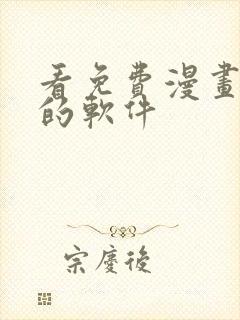 看免費漫畫
的軟件
宗慶後